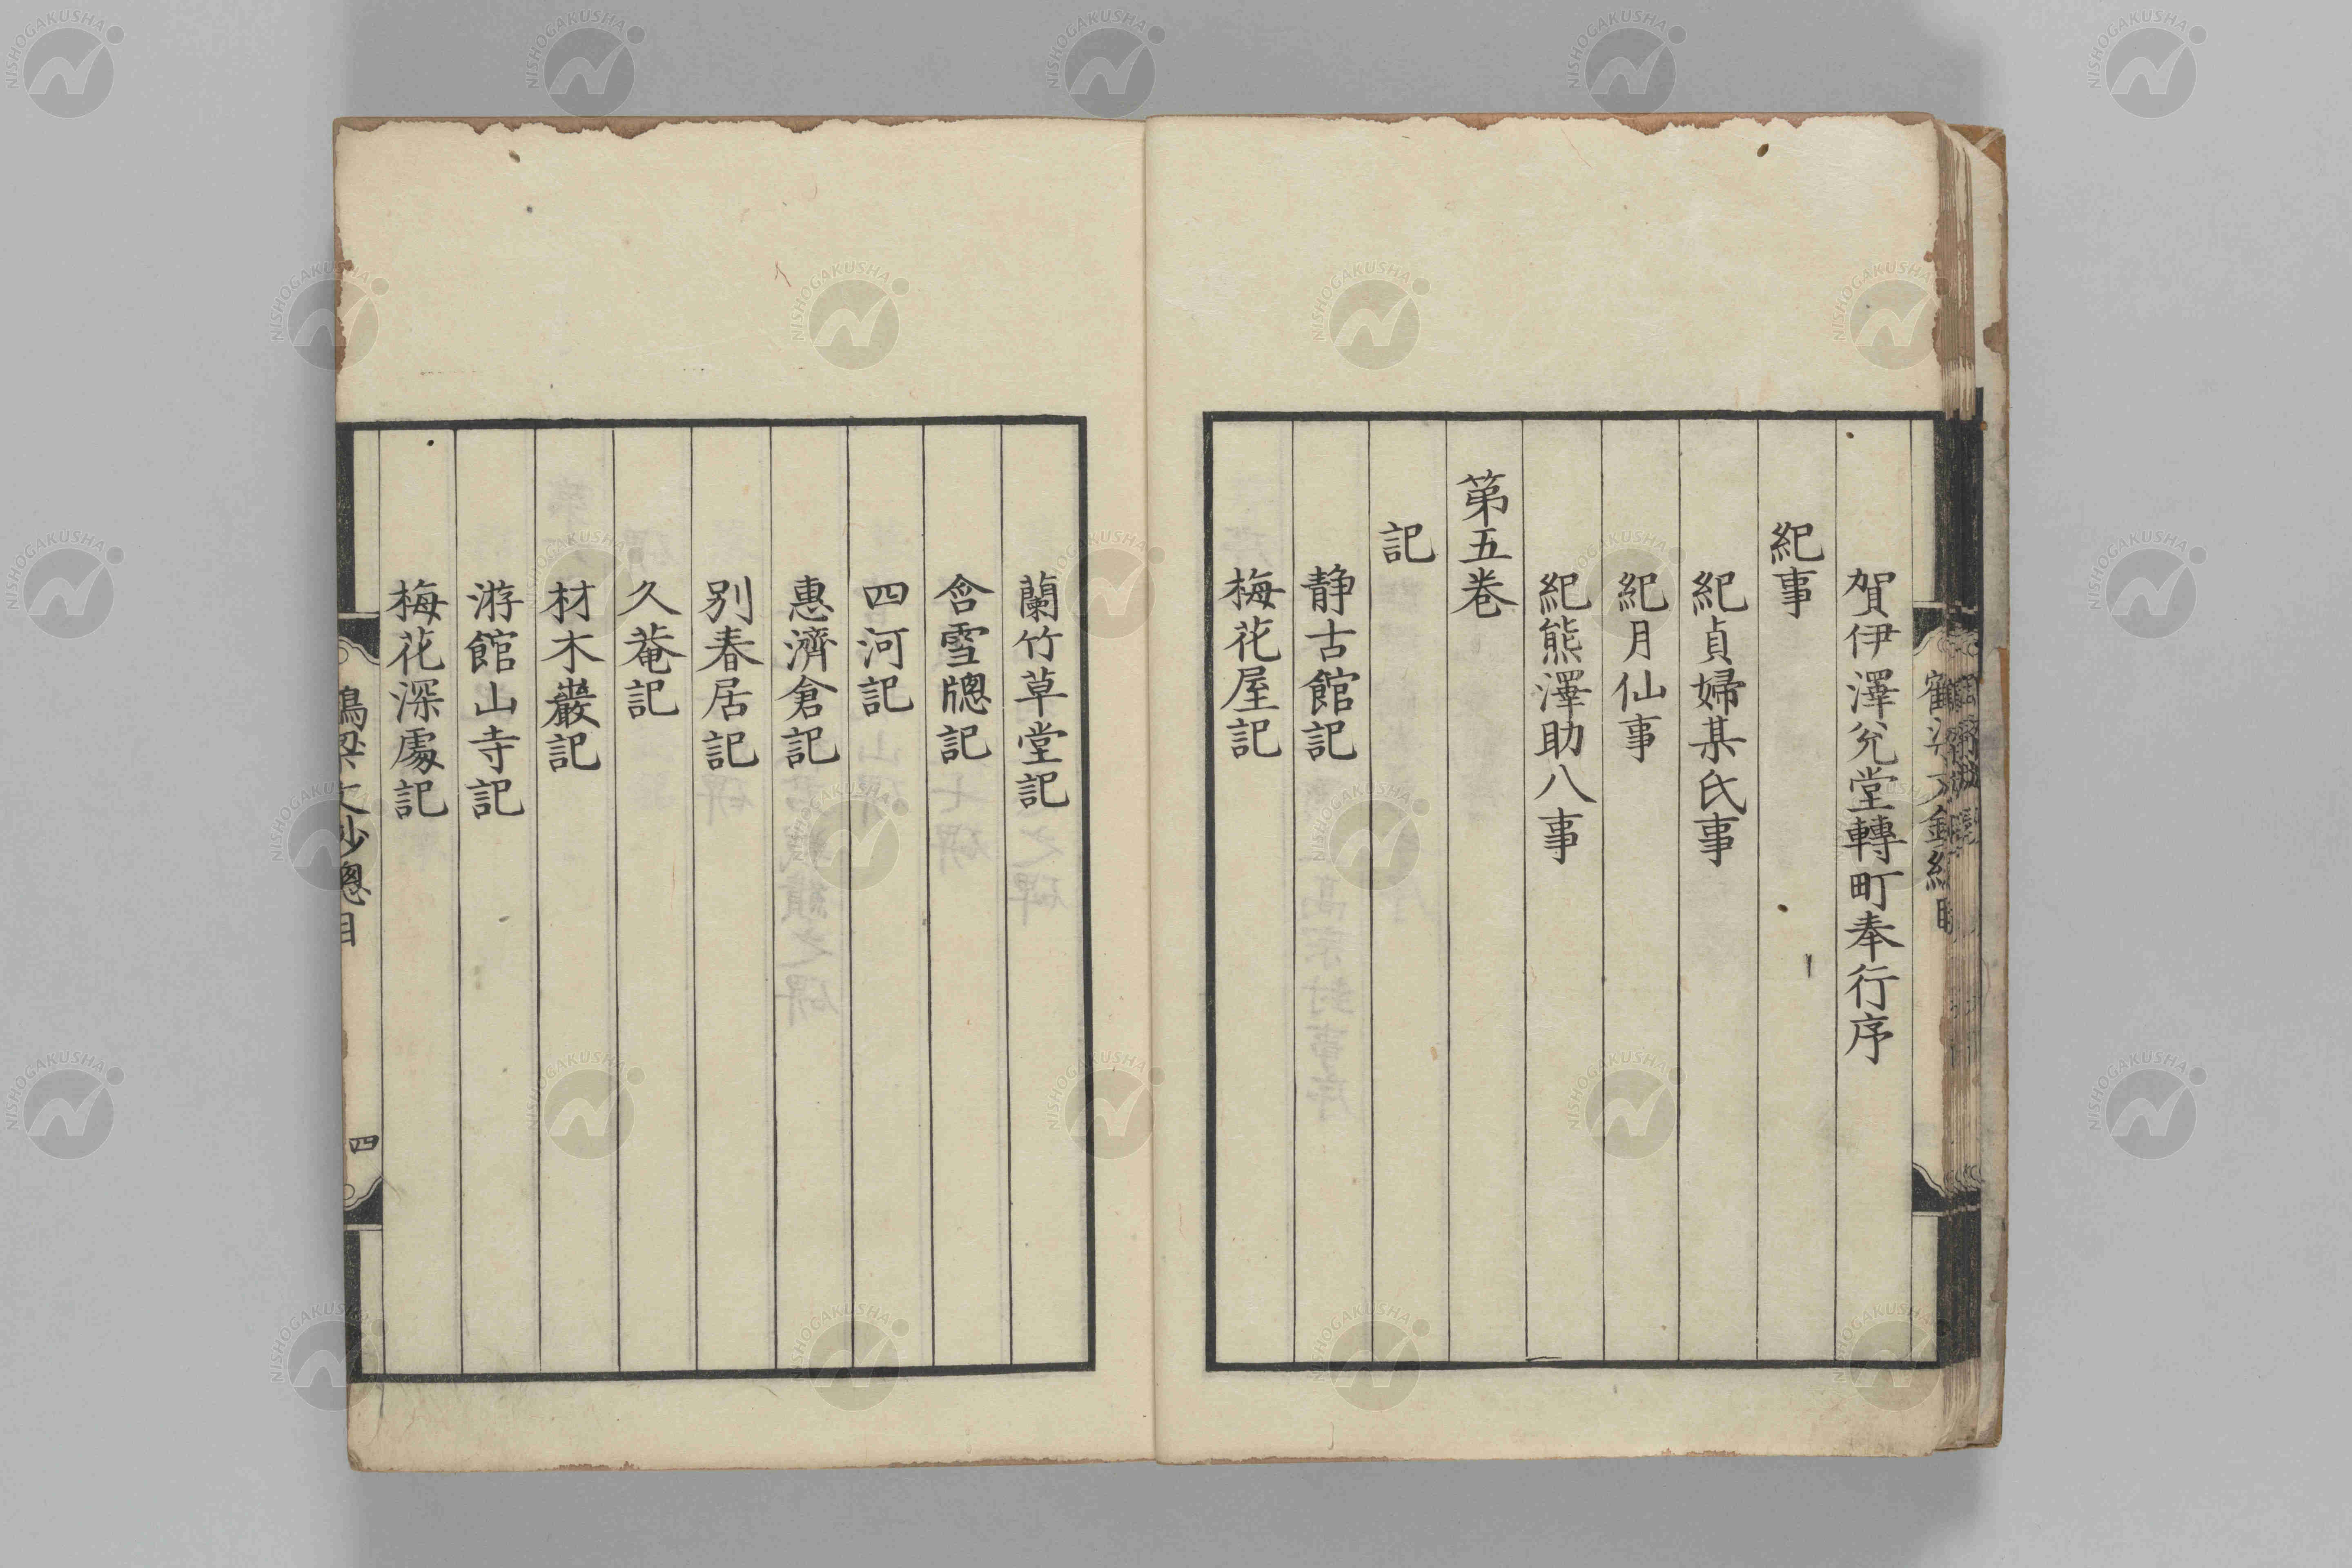 賀伊澤兊堂轉町奉行序
紀事
紀貞婦某氏事
紀月仙事
紀熊澤助八事
第五巻
記
静古館記
梅花屋記
蘭竹草堂記
含雪牕記
四河記
惠濟倉記
別春居記
久菴記
材木巖記
游館山寺記
梅花深處記
四
NISHOGAKUSHA